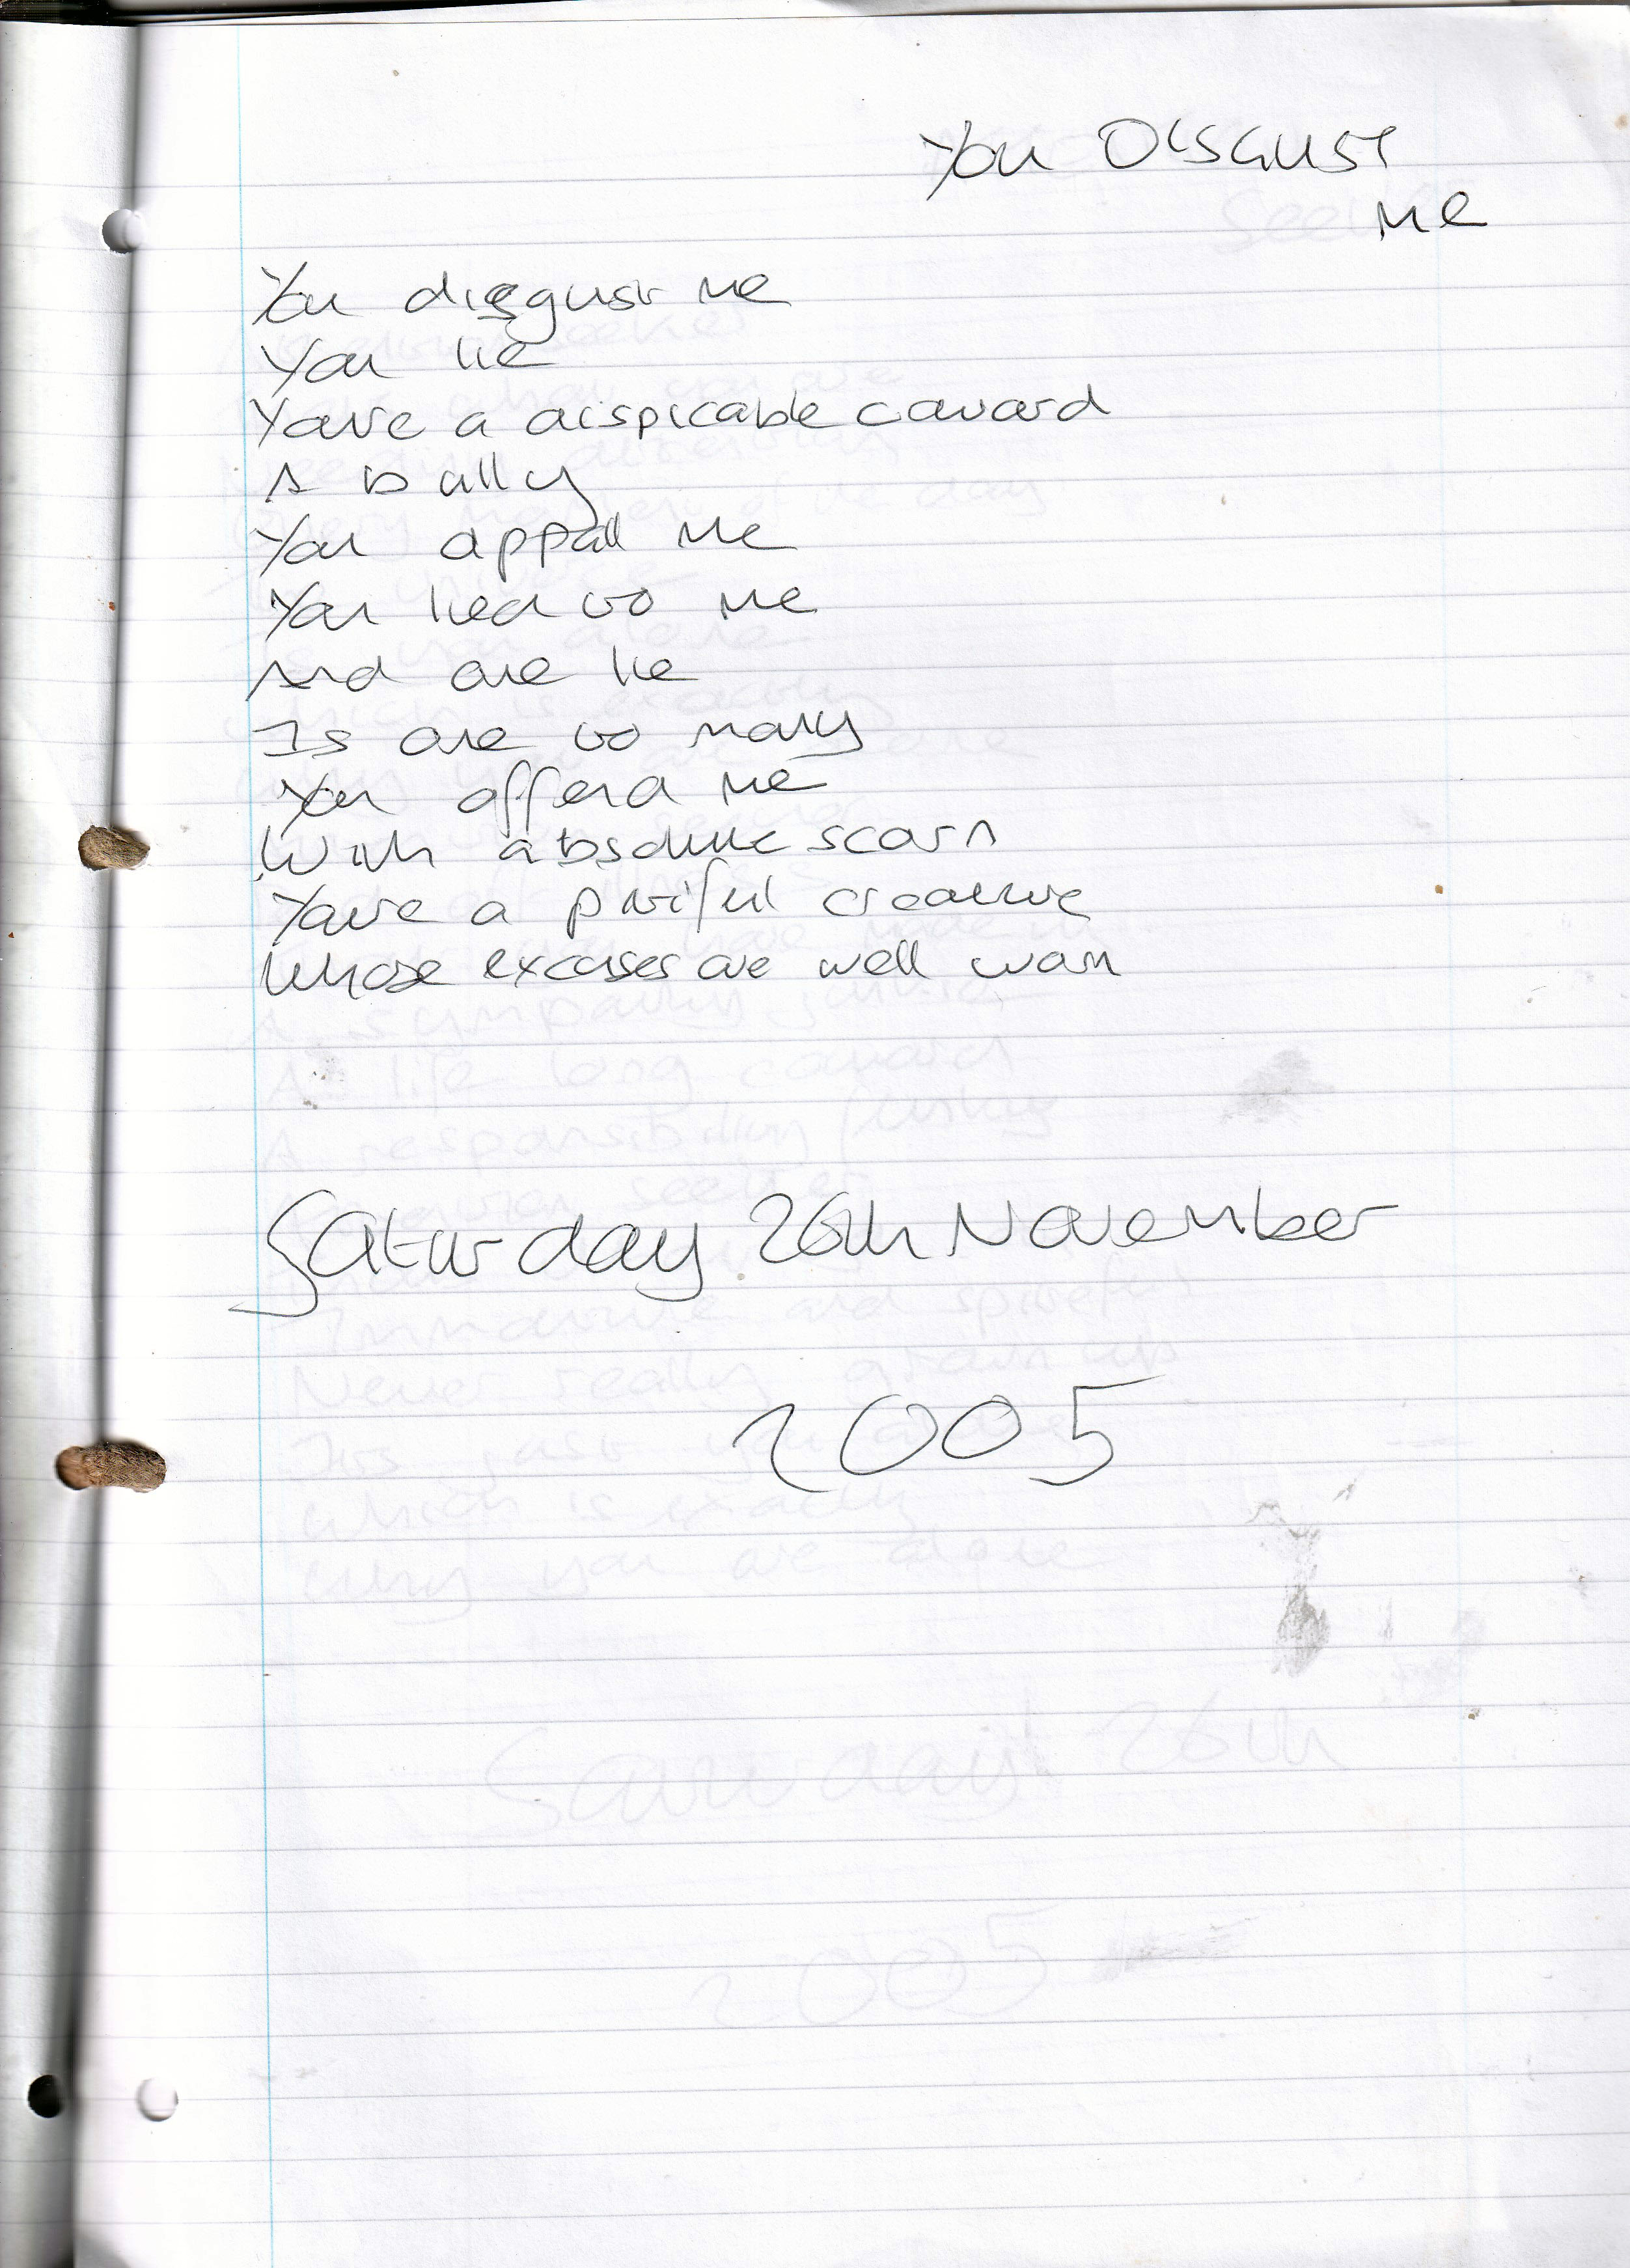 You DISGUST
Me
You disgust me
You lie
Youre a dispicable coward
A bully
You appall me
You lied to me
And one lie
Is one to many
You offend me
With absolute scorn
Youre a pitiful creature
Whose excuses are well worn
Saturday 26th November
2005